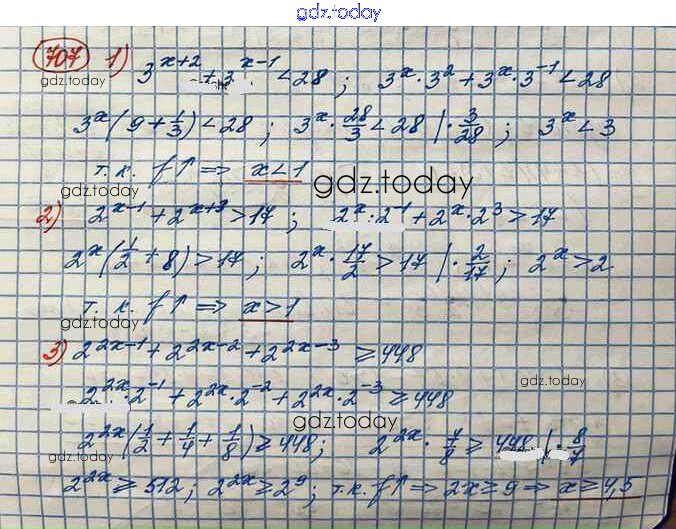 gdz.today
707 1) 3^{x+2} + 3^{x-1} < 28 ; 3^x · 3^2 + 3^x · 3^{-1} < 28
gdz.today
3^x (9 + 1/3) < 28 ; 3^x · 28/3 < 28 | · 3/28 ; 3^x < 3
т. к. f ↑ ⇒ x < 1
gdz.today
gdz.today
2) 2^{x-1} + 2^{x+3} > 17 ; 2^x · 2^{-1} + 2^x · 2^3 > 17
2^x (1/2 + 8) > 17 ; 2^x · 17/2 > 17 | · 2/17 ; 2^x > 2
т. к. f ↑ ⇒ x > 1
gdz.today
3) 2^{2x-1} + 2^{2x-2} + 2^{2x-3} ≥ 448
gdz.today
2^{2x} · 2^{-1} + 2^{2x} · 2^{-2} + 2^{2x} · 2^{-3} ≥ 448
gdz.today
2^{2x} (1/2 + 1/4 + 1/8) ≥ 448 ; 2^{2x} · 7/8 ≥ 448 | · 8/7
gdz.today
2^{2x} ≥ 512 ; 2^{2x} ≥ 2^9 ; т. к. f ↑ ⇒ 2x ≥ 9 ⇒ x ≥ 4,5